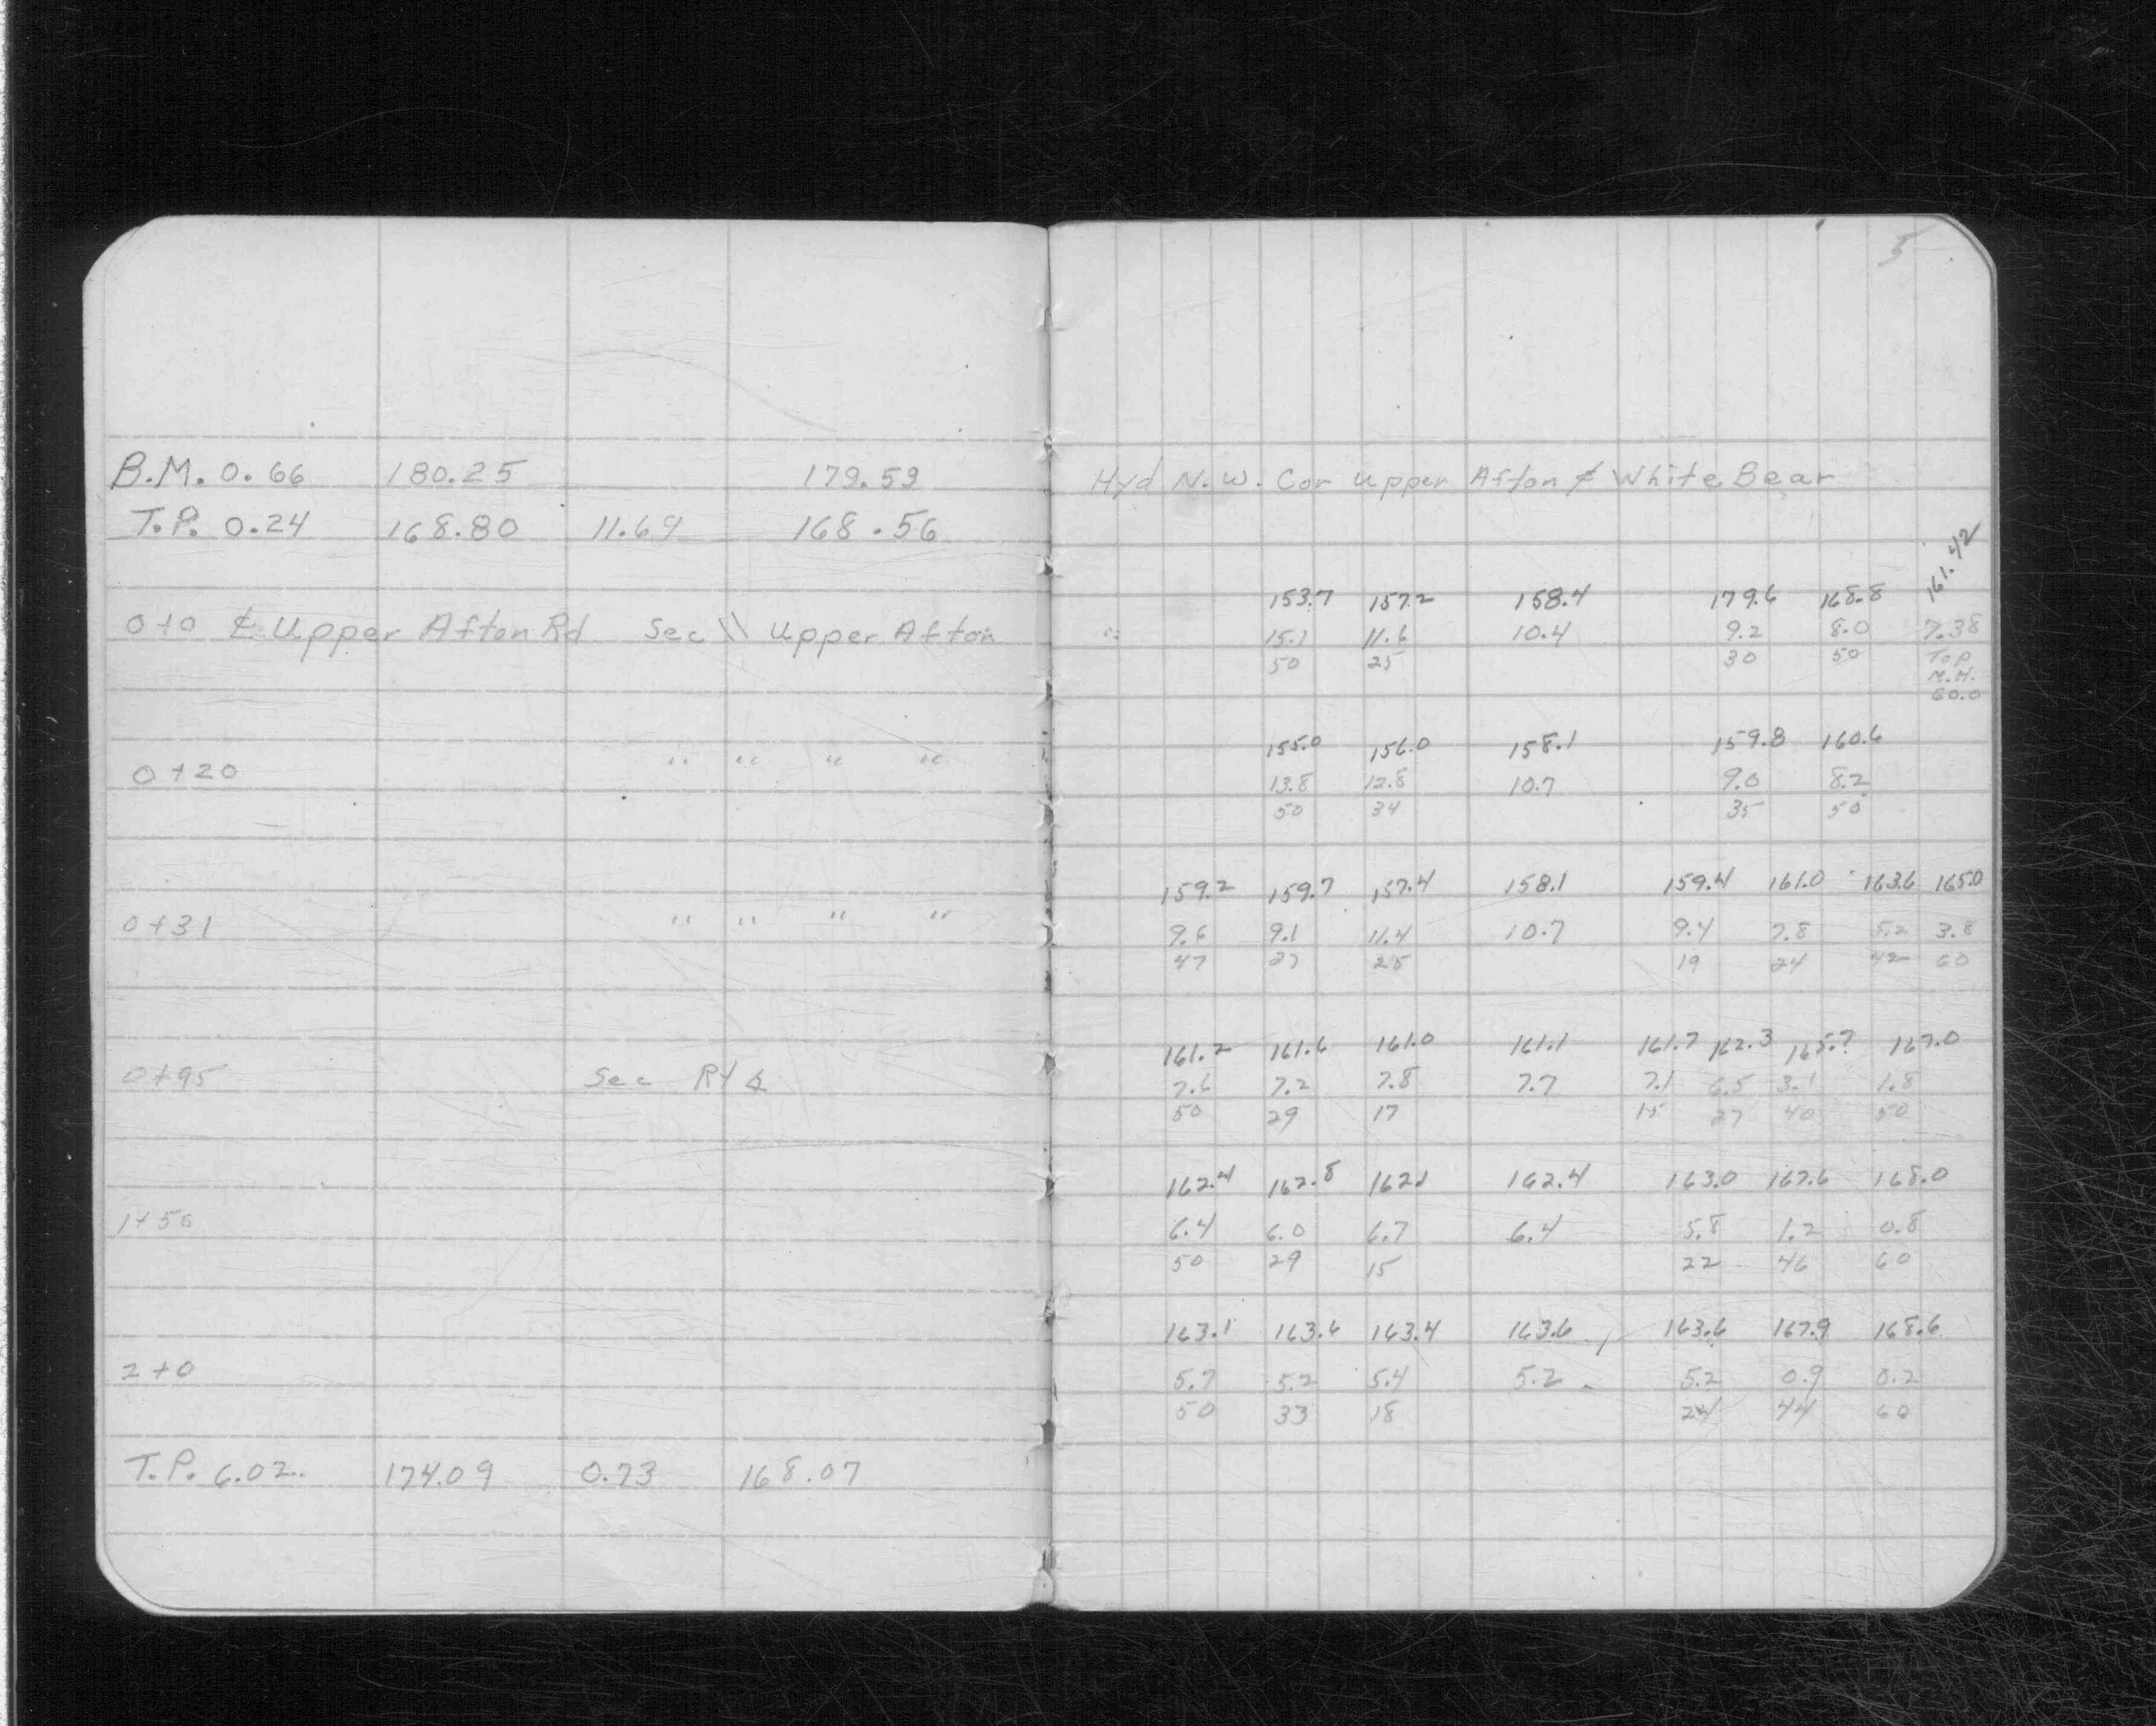 5
B.M. 0.66 180.25 179.59 Hyd N.W. Cor Upper Afton & White Bear
T.P. 0.24 168.80 11.69 168.56
161.42
153.7 157.2 158.4 179.6 168.8
0+0 ₵ Upper Afton Rd Sec \\ Upper Afton 15.1 11.6 10.4 9.2 8.0 7.38
50 25 30 50 Top
M.H.
60.0
155.0 156.0 158.1 159.8 160.6
0+20 " " " " 13.8 12.8 10.7 9.0 8.2
50 34 35 50
159.2 159.7 157.4 158.1 159.4 161.0 163.6 165.0
0+31 " " " " 9.6 9.1 11.4 10.7 9.4 7.8 5.2 3.8
47 25 19 24 42 60
161.2 161.6 161.0 161.1 161.7 162.3 165.7 167.0
0+95 Sec Rt ∠ 7.6 7.2 7.8 7.7 7.1 6.5 3.1 1.8
50 29 17 15 27 40 50
162.4 162.8 162.1 162.4 163.0 167.6 168.0
1+50 6.4 6.0 6.7 6.4 5.8 1.2 0.8
50 29 15 22 46 60
163.1 163.6 163.4 163.6 163.6 167.9 168.6
2+0 5.7 5.2 5.4 5.2 5.2 0.9 0.2
50 33 18 24 44 60
T.P. 6.02 174.09 0.73 168.07